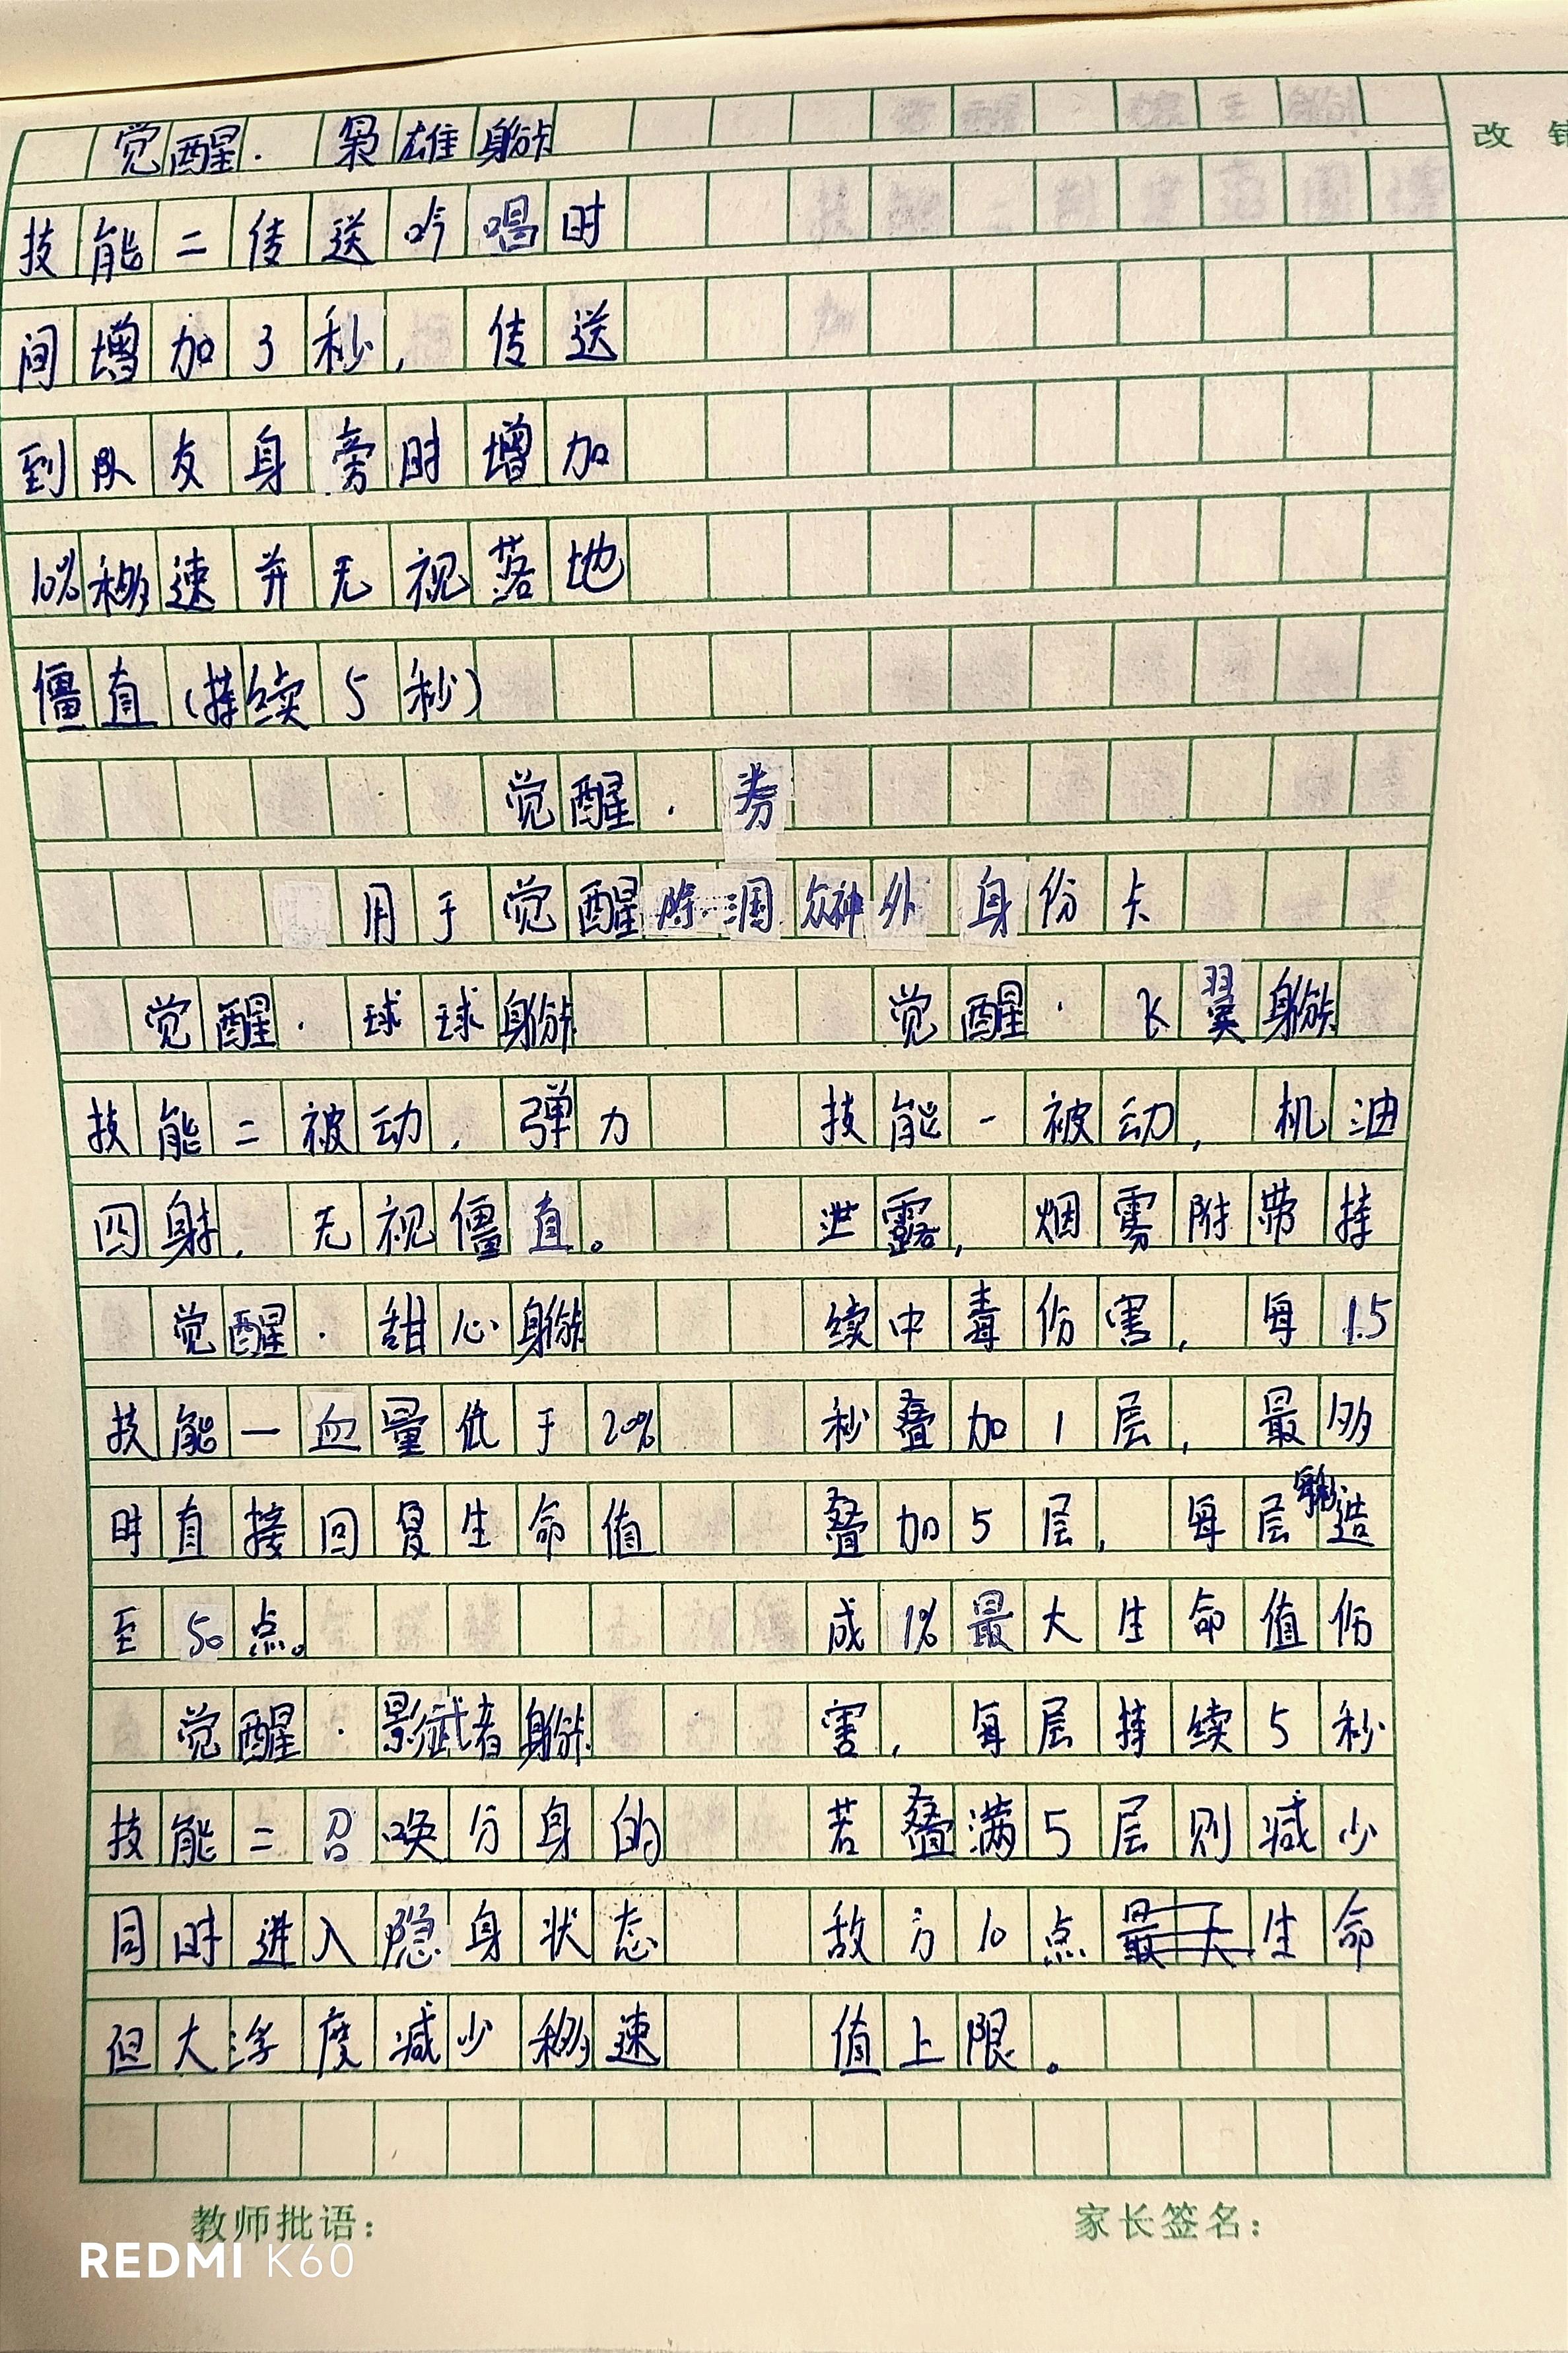 觉醒·枭雄身份卡
技能二传送吟唱时
间增加3秒，传送
到队友身旁时增加
10%移速并无视落地
僵直(持续5秒)
觉醒·券
用于觉醒除三国众神外身份卡
觉醒·球球身份卡
技能二被动，弹力
四射，无视僵直。
觉醒·甜心身份卡
技能一血量低于20%
时直接回复生命值
至50点。
觉醒·影武者身份卡
技能二召唤分身的
同时进入隐身状态
但大浮度减少移速
觉醒·飞翼身份卡
技能一被动，机油
泄露，烟雾附带持
续中毒伤害，每1.5
秒叠加1层，最多
叠加5层，每层每秒造
成1%最大生命值伤
害，每层持续5秒
若叠满5层则减少
敌方10点生命
值上限。
改错
教师批语：
家长签名：
REDMI K60